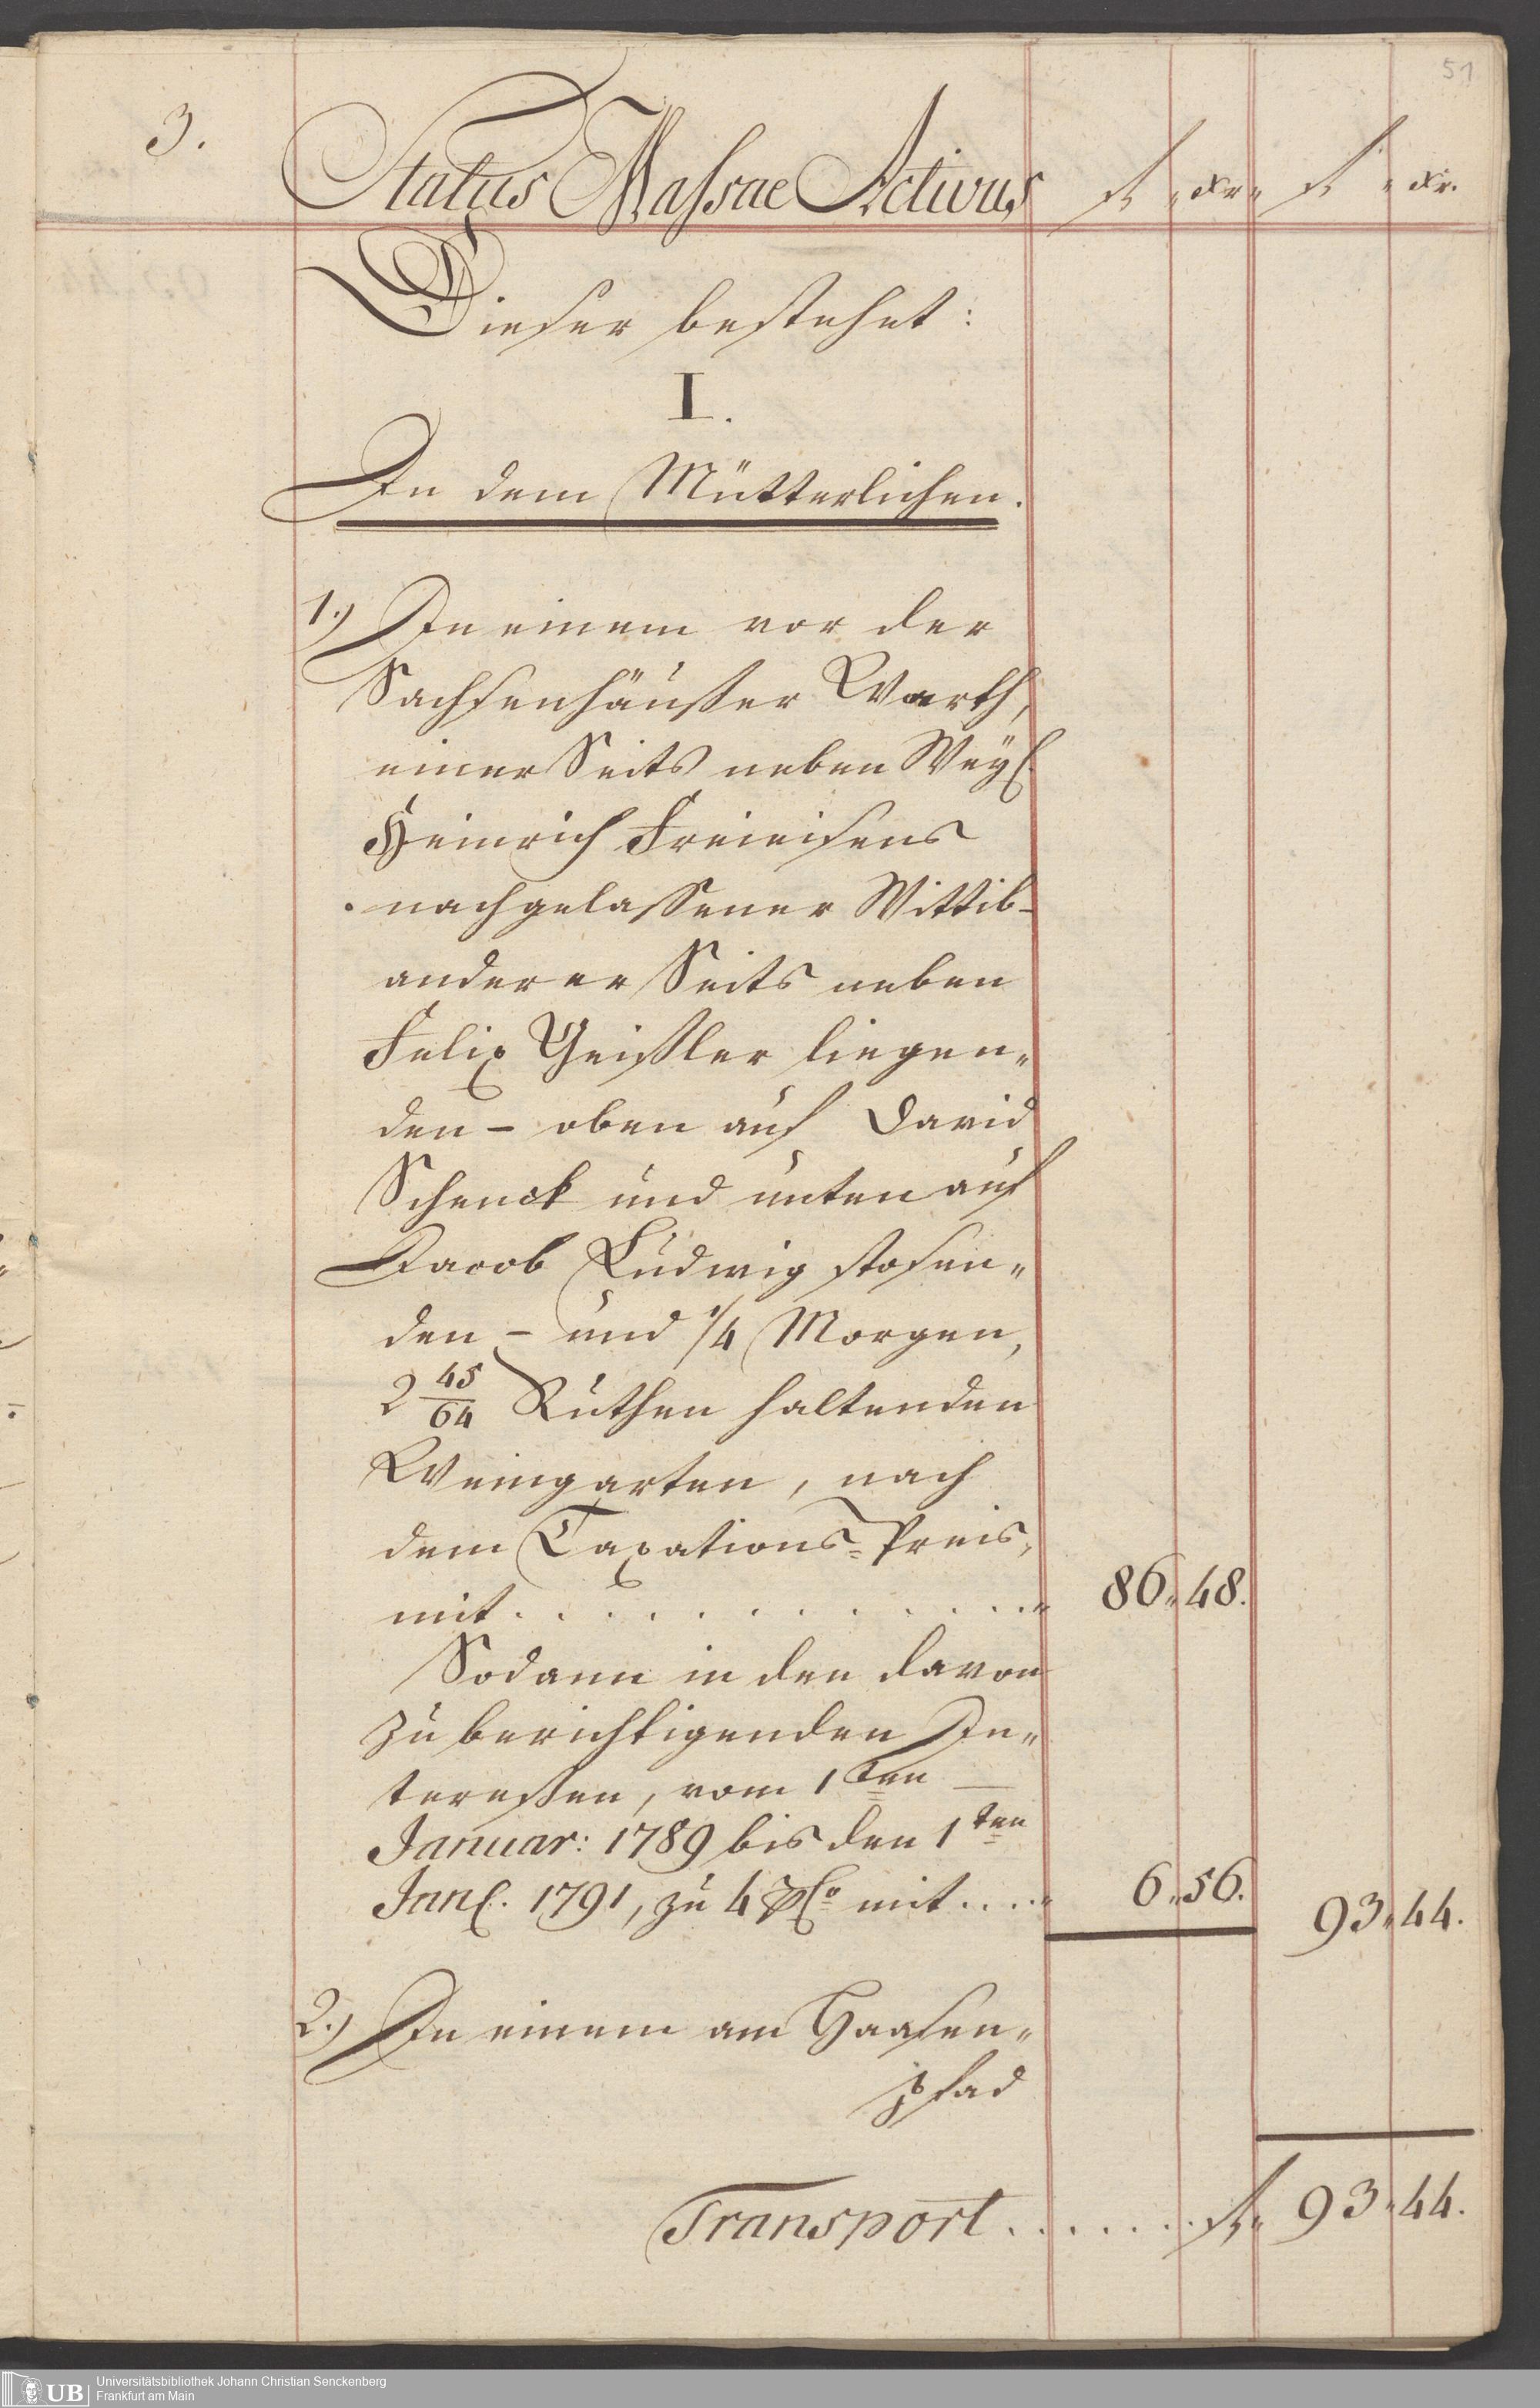 51
3.
Status Massae Activus fl „ xr „ fl „ xr.
Dieser bestehet:
I.
In dem Mütterlichen.
1.) In einem vor der
Sachsenhäußer Warth,
einer Seits neben Weyl.
Heinrich Freieisens
nachgelassener Wittib-
anderer Seits neben
Felix Geißler liegen„
den - oben auf David
Schenck und unten auf
Jacob Ludwig stosen„
den - und 1/4 Morgen,
2 45/64 Ruthen haltenden
Weingarten, nach
dem Taxations=Preis,
mit . . . . . . . . . . . . „ 86 „ 48.
Sodann in den davon
zu berichtigenden In„
teressen, vom 1ten
Januar: 1789 bis den 1ten
Jan. 1791, zu 4 pCo mit . . . . „ 6 „ 56. 93 „ 44.
2.) In einem am Haasen„
pfad
Transport . . . . . . . fl „ 93 „ 44.
UB
Universitätsbibliothek Johann Christian Senckenberg
Frankfurt am Main